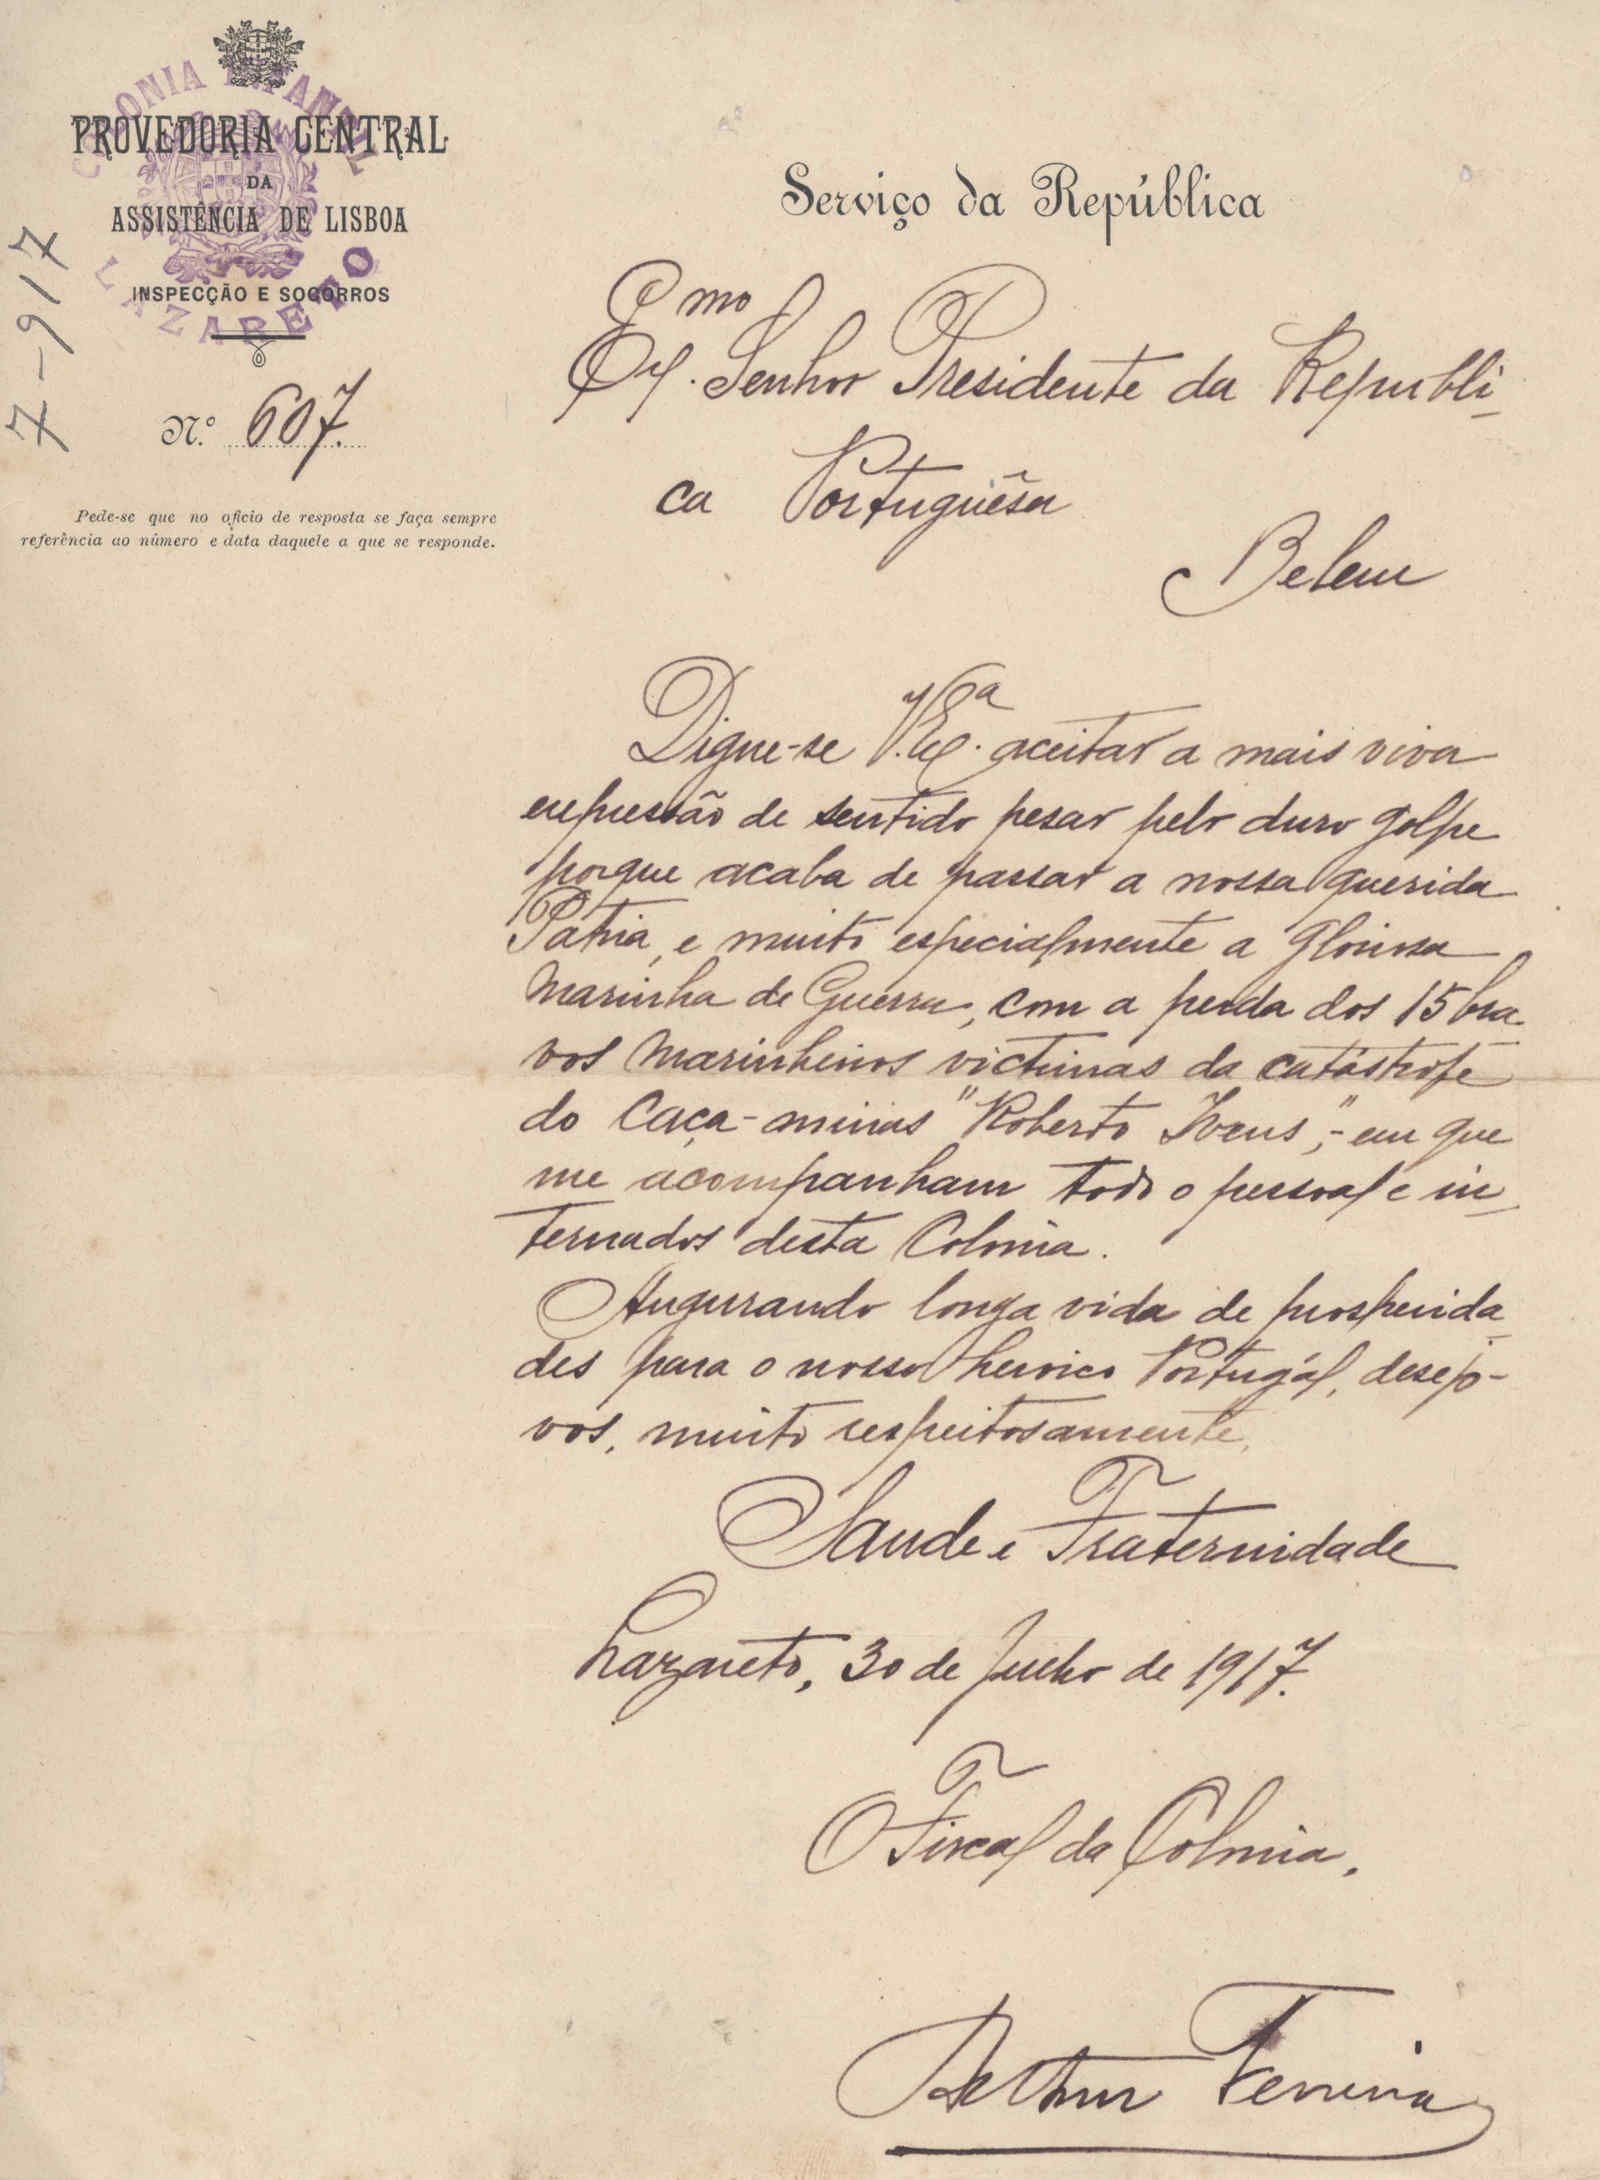 COLONIA INFANTIL
LAZARETO
PROVEDORIA CENTRAL
DA
ASSISTÊNCIA DE LISBOA
INSPECÇÃO E SOCORROS
7-917
N.º 607.
Pede-se que no oficio de resposta se faça sempre
referência ao número e data daquele a que se responde.
Serviço da República
Exmo. Senhor Presidente da Republi-
ca Portuguêsa
Belem
Digne-se V. Exa. aceitar a mais viva
expressão de sentido pesar pelo duro golpe
porque acaba de passar a nossa querida
Patria, e muito especialmente a gloriosa
Marinha de Guerra, com a perda dos 15 bra-
vos marinheiros victimas da catástrofe
do Caça-minas "Roberto Ivens",- em que
me acompanham todo o pessoal e in-
ternados desta Colonia.
Augurando longa vida de prosperida-
des para o nosso heroico Portugál, desejo-
vos, muito respeitosamente,
Saude e Fraternidade
Lazareto, 30 de Julho de 1917.
O Fiscal da Colonia,
Arthur Ferreira